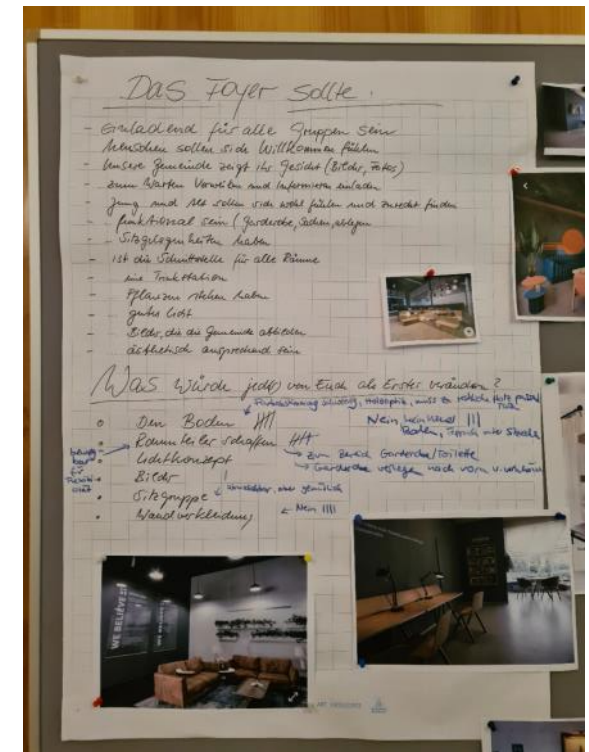 Das Foyer sollte:
- Einladend für alle Gruppen sein
Menschen sollen sich Willkommen fühlen
- Unsere Gemeinde zeigt ihr Gesicht (Bilder, Fotos)
- zum Warten Verweilen und Informieren einladen
- Jung und Alt sollen sich wohl fühlen und zurecht finden
- funktional sein (Garderobe, Sachen, ablegen
- Sitzgelegenheiten haben
- ist die Schnittstelle für alle Räume
- eine Trinkstation
- Pflanzen stehen haben
- gutes Licht
- Bilder, die die Gemeinde abbilden
- ästhetisch ansprechend sein
Was würde jede(r) von Euch als Erster verändern?
Holzoptik, muss zu
Nein, kein
Boden, Teppich
Den Boden
Raumteiler schaffen
→ zum Bereich Garderobe/Toilette
Lichtkonzept
→ Garderobe verlegen nach vorn
Bilder
Sitzgruppe
aber gemütlich
Wandverkleidung
← Nein
WE BELIEVE